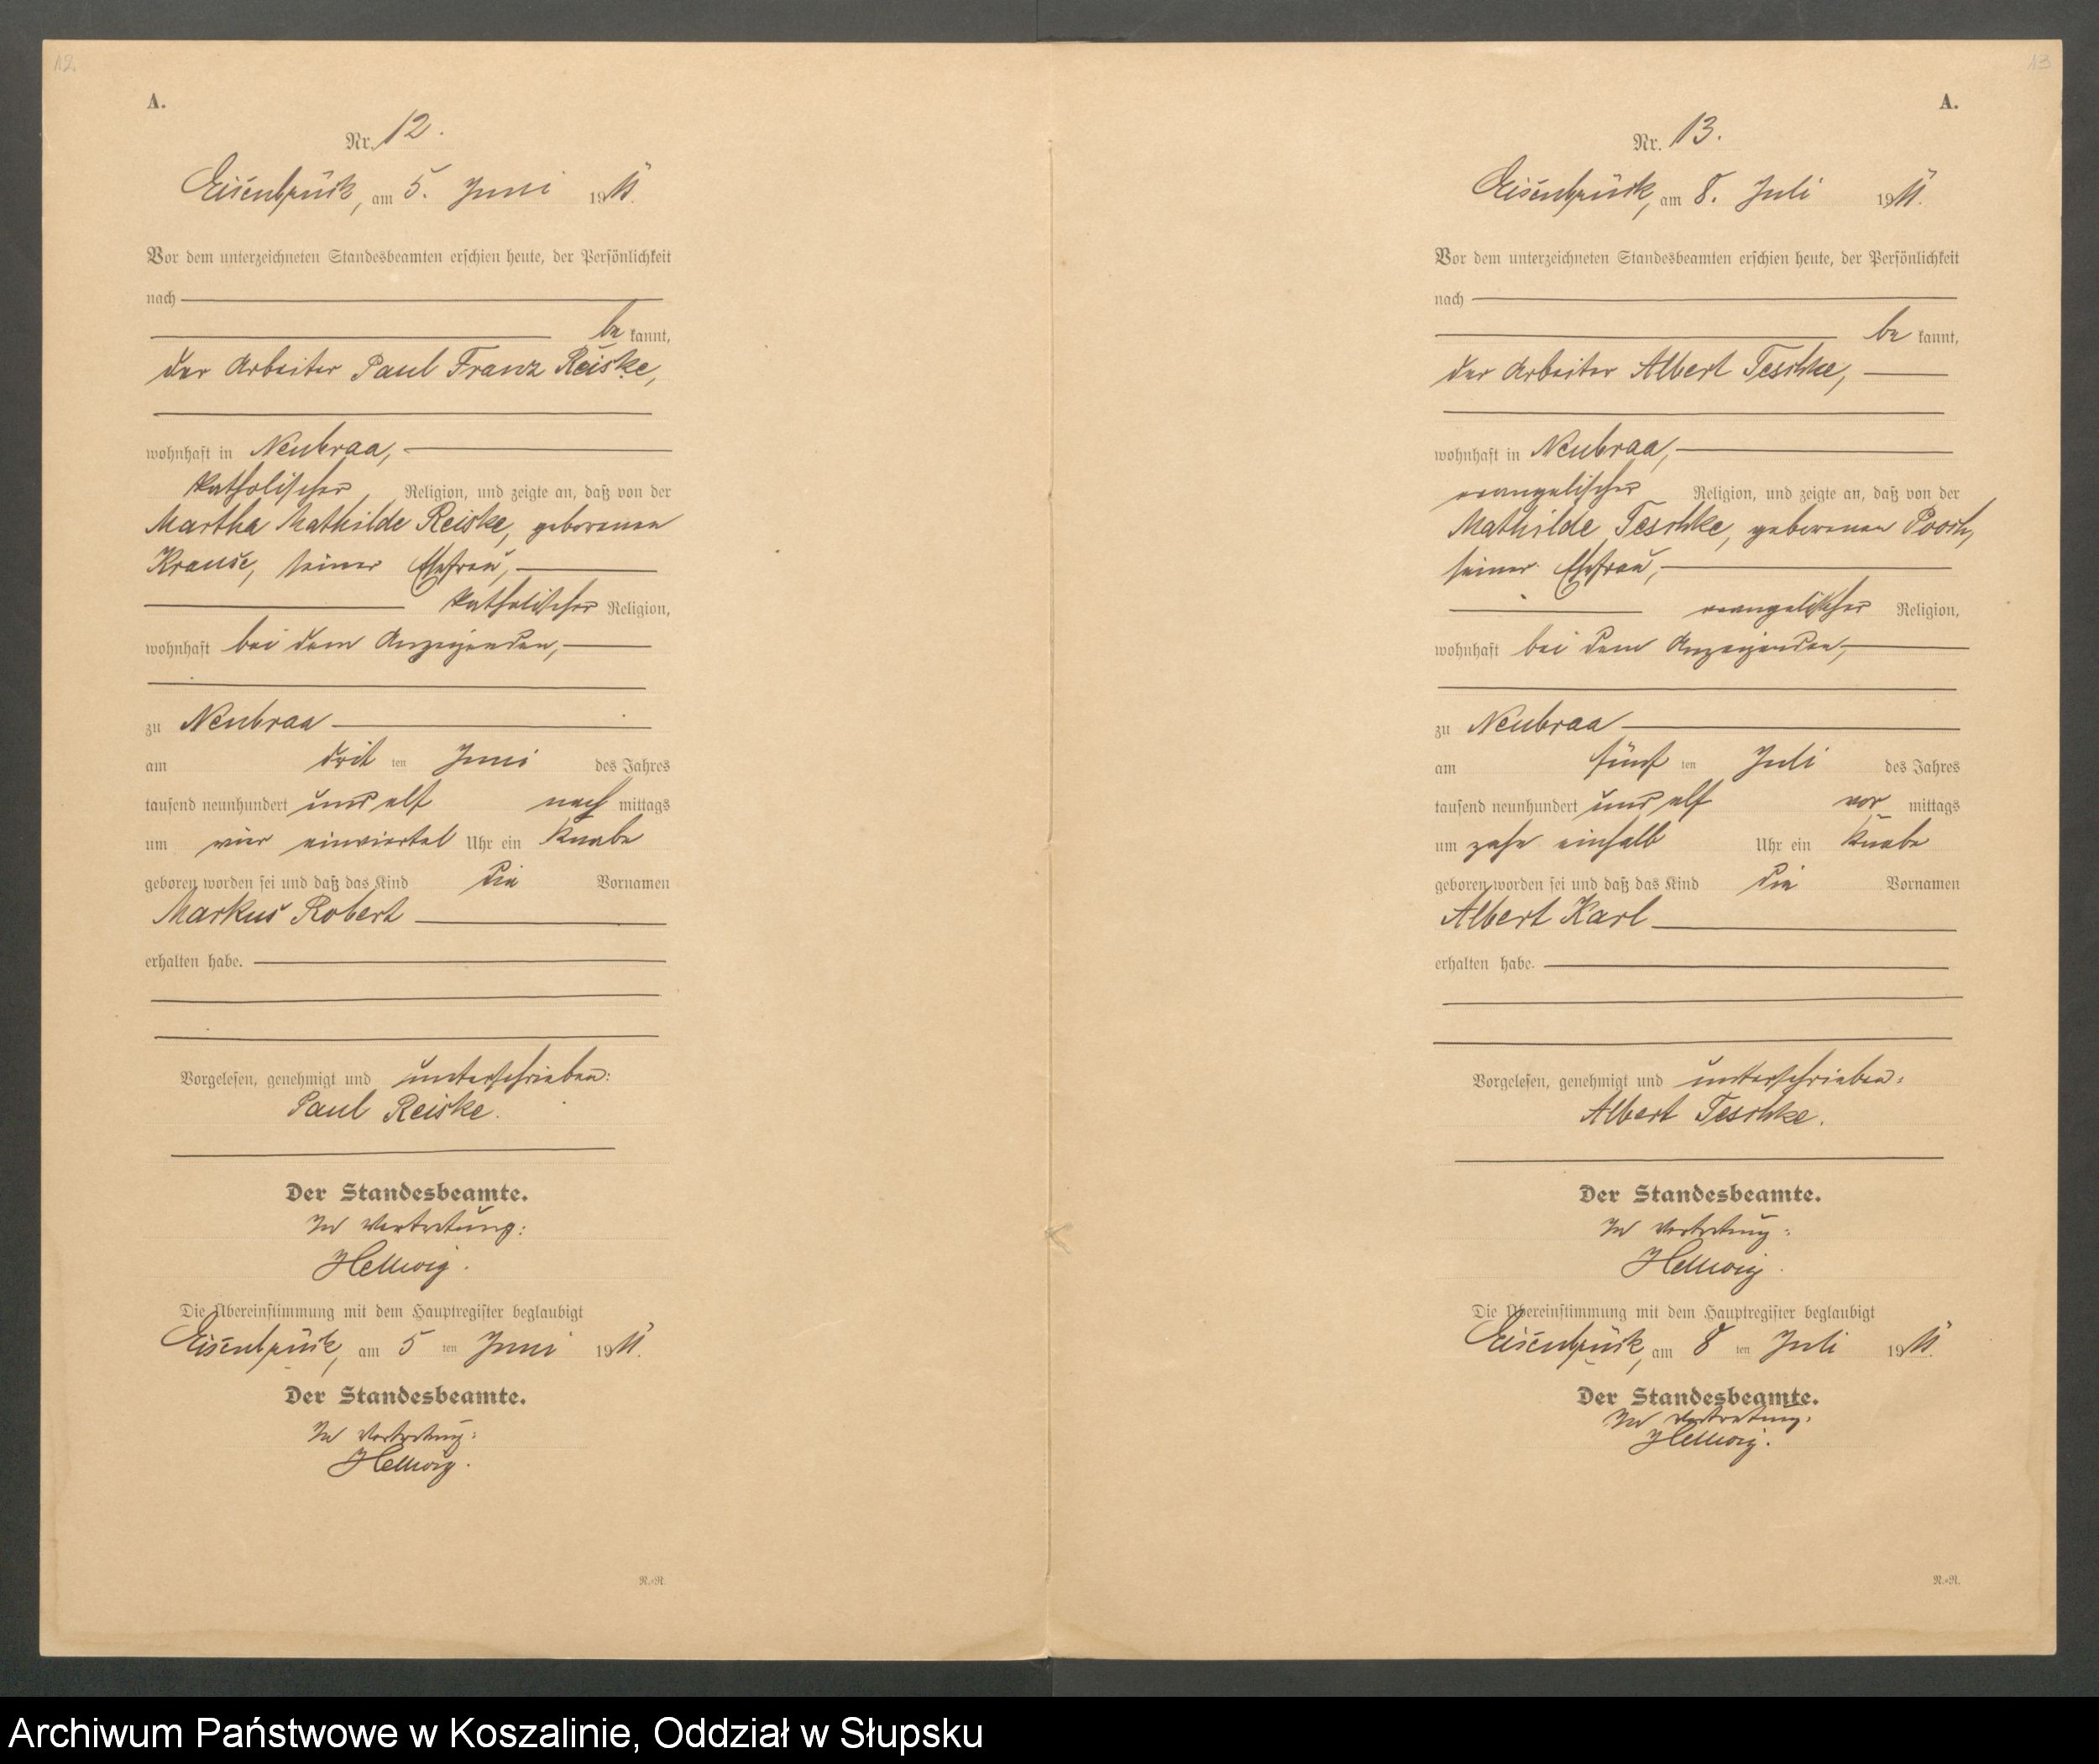 12.
A.
Nr. 12.
Eisenbrück, am 5. Juni 1911.
Vor dem unterzeichneten Standesbeamten erschien heute, der Persönlichkeit
nach
be kannt,
der Arbeiter Paul Franz Reiske,
wohnhaft in Neubraa,
katholischer Religion, und zeigte an, daß von der
Martha Mathilde Reiske, geborenen
Krause, seiner Ehefrau,
katholischer Religion,
wohnhaft bei dem Anzeigenden,
zu Neubraa
am drit ten Juni des Jahres
tausend neunhundert und elf nach mittags
um vier einviertel Uhr ein Knabe
geboren worden sei und daß das Kind die Vornamen
Markus Robert
erhalten habe.
Vorgelesen, genehmigt und unterschrieben:
Paul Reiske.
Der Standesbeamte.
In Vertretung:
Hellwig.
Die Übereinstimmung mit dem Hauptregister beglaubigt
Eisenbrück, am 5 ten Juni 1911.
Der Standesbeamte.
In Vertretung:
Hellwig.
R.=R.
13
A.
Nr. 13.
Eisenbrück, am 8. Juli 1911.
Vor dem unterzeichneten Standesbeamten erschien heute, der Persönlichkeit
nach
be kannt,
der Arbeiter Albert Teschke,
wohnhaft in Neubraa,
evangelischer Religion, und zeigte an, daß von der
Mathilde Teschke, geborenen Pooch,
seiner Ehefrau,
evangelischer Religion,
wohnhaft bei dem Anzeigenden,
zu Neubraa
am fünf ten Juli des Jahres
tausend neunhundert und elf vor mittags
um zehn einhalb Uhr ein Knabe
geboren worden sei und daß das Kind die Vornamen
Albert Karl
erhalten habe.
Vorgelesen, genehmigt und unterschrieben:
Albert Teschke.
Der Standesbeamte.
In Vertretung:
Hellwig.
Die Übereinstimmung mit dem Hauptregister beglaubigt
Eisenbrück, am 8 ten Juli 1911.
Der Standesbeamte.
In Vertretung:
Hellwig.
R.=R.
Archiwum Państwowe w Koszalinie, Oddział w Słupsku